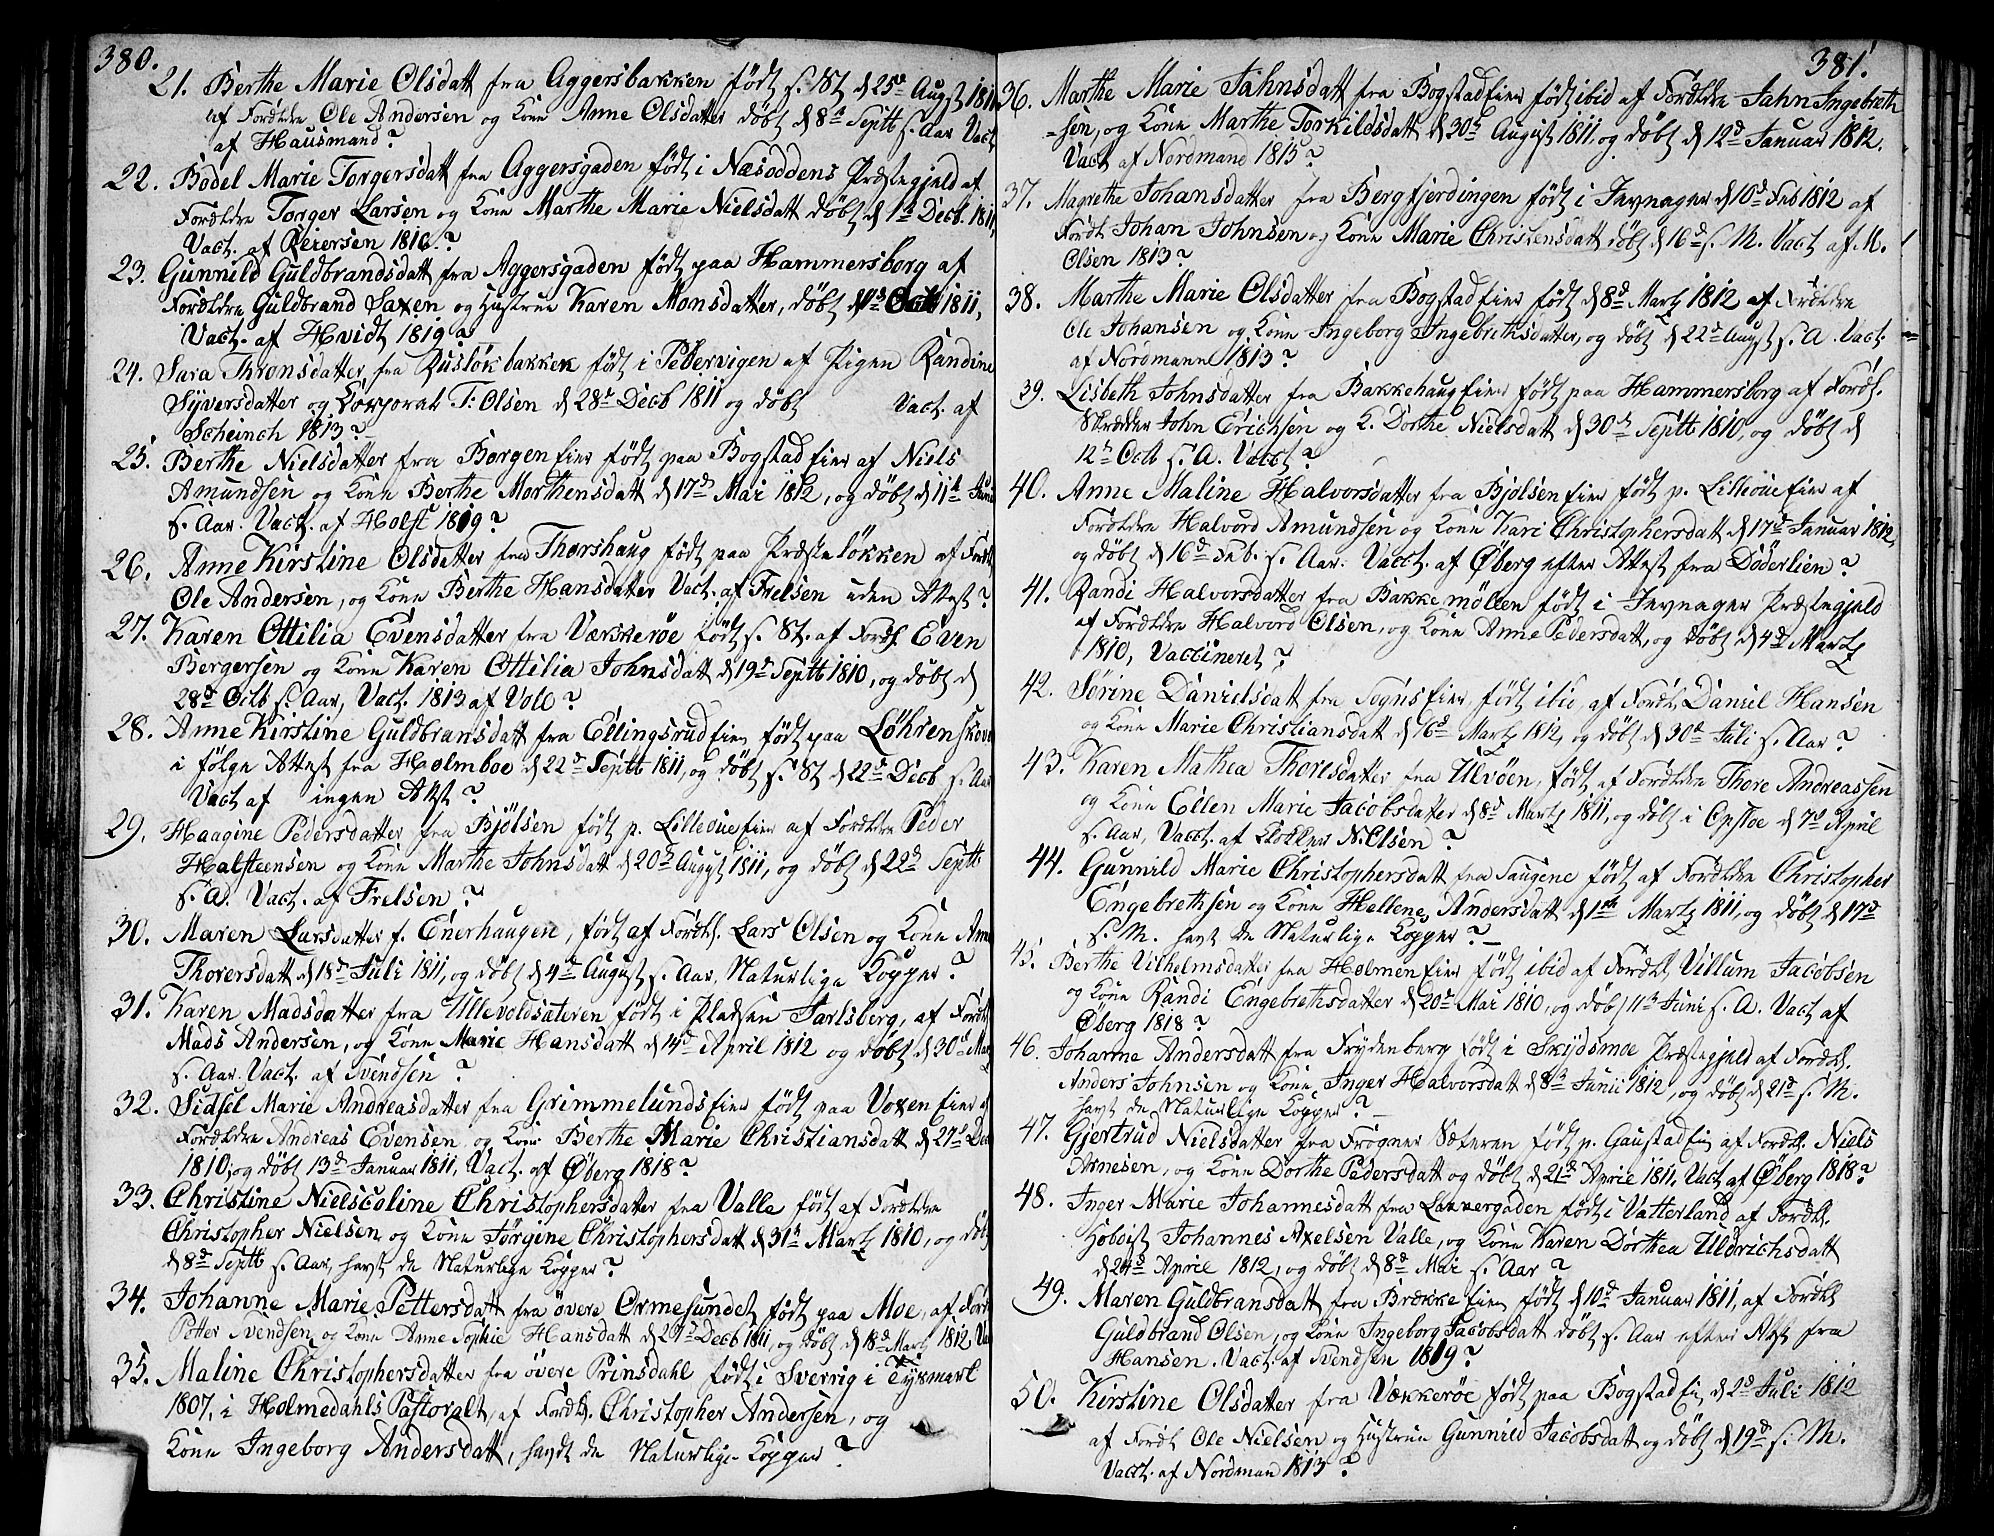 380.
21. Berthe Marie Olsdatt fra Aggersbakken født s. St. d 25de Augst 1811
af Forældre Ole Andersen og Kone Anne Olsdatter døbt d 8de Septb s. Aar Vact
af Hausmand?
22. Bodel Marie Torgersdatt fra Aggersgaden født i Næsoddens Præstegjeld af
Forældre Torger Larsen og Kone Marthe Marie Nielsdatt døbt d 1ste Decb. 1811,
Vact. af Reiersen 1816.?
23. Gunnild Guldbrandsdatt fra Aggersgaden født paa Hammersborg af
Forældre Guldbrand Saxen og Hustrue Karen Monsdatter, døbt d Octb 1811,
Vact. af Hvidt 1819?
24. Sara Thronsdatter fra Rusløkbakken født i Pebervigen af Pigen Randine
Syversdatter og Korporal T: Olsen d 28de Decb 1811 og døbt Vact. af
Scheinch 1813?
25. Berthe Nielsdatter fra Borgen Eier født paa Bogstad Eier af Niels
Amundsen og Kone Berthe Morthensdatt d 17de Mai 1812, og døbt d 11te Juni
s. Aar. Vact. af Holst 1819?
26. Anne Kirstine Olsdatter fra Thorshaug født paa Præsteløkken af Forældre
Ole Andersen, og Kone Berthe Hansdatter Vact. af Frelsen uden Attest?
27. Karen Ottilia Evensdatter fra Værskerøe født s. St. af Foræld. Even
Bergersen og Kone Karen Ottilia Johnsdatt d 19de Septb 1810, og døbt d
28de Octb s. Aar, Vact. 1813 af Voll?
28. Anne Kirstine Guldbransdatt fra Ellingsrud Eier født paa Løhrenskoven
i følge Attest fra Holmboe d 22de Septb 1811, og døbt s. St d 22de Decb s. Aar
Vact af ingen Attst?
29. Haagine Pedersdatter fra Bjølsen født p. Lilleøue Eier af Forældre Peder
Halsteensen og Kone Marthe Johnsdatt d 20de August 1811, og døbt d 22de Septb
s. A. Vact. af Frelsen?
30. Maren Larsdatter f. Enerhaugen, født af Foræld. Lars Olsen og Kone Anne
Thorersdatt d 18de Juli 1811, og døbt d 4de August s. Aar, Naturlige Kopper?
31. Karen Madsdatter fra Ullevoldsæteren født i Pladsen Jarlsberg, af Foræld
Mads Andersen, og Kone Marie Hansdatt d 14de April 1812 og døbt d 30de Mai
s. Aar. Vact. af Svendsen?
32. Sidsel Marie Andreasdatter fra Grimmelunds Eier født paa Voxen Eier af
Forældre Andreas Evensen, og Kone Berthe Marie Christiansdatt d 27de Decb
1810, og døbt 13de Januar 1811, Vact. af Øberg 1818?
33. Christine Nielscoline Christophersdatter fra Valle født af Forældre
Christopher Nielsen og Kone Jørgine Christophersdatt d 31te Martz 1810, og døbt
d 8de Septb s. Aar, havt de Naturlige Kopper?
34. Johanne Marie Pettersdatt fra øvere Ormesundet født paa Moe, af Foræld
Petter Svendsen og Kone Anne Sophie Hansdatt d 27de Decb 1811, og døbt d 18de Martz 1812 Va
35. Maline Christophersdatter fra øvere Prinsdahl født i Sverrig i Tysmarl
1807, i Holmedahls Pastoralt, af Foræld. Christopher Andersen, og
Kone Ingeborg Andersdatt, havdt de Naturlige Kopper?
381.
36. Marthe Marie Jahnsdatt fra Bogstad Eier født ibid af Forældre Jahn Ingebreth
-sen, og Kone Marthe Torkildsdatt d 30te August 1811, og døbt d 12de Januar 1812.
Vact af Nordmand 1815?
37. Magrethe Johansdatter fra Bergfjerdingen født i Jevnager d 10de Feb 1812 af
Foræld Johan Johnsen og Kone Marie Christensdatt døbt d 16de s. M. Vact af M.
Olsen 1813?
38. Marthe Marie Olsdatter fra Bogstad Eier født d 8de Martz 1812 af Forældre
Ole Johansen og Kone Ingeborg Ingebrethsdatter, og døbt d 22de Augst s. A. Vact.
af Nordmann 1813?
39. Lisbeth Johnsdatter fra Bakkehaug Eier født paa Hammersborg af Foræld.
Skrædder John Erichsen og K. Dorthe Nielsdatt d 30te Septb 1810, og døbt d
12te Octb s. A. Vact?
40. Anne Maline Halvorsdatter fra Bjølsen Eier født p. Lilleøue Eier af
Forældre Halvord Amundsen og Kone Kari Christophersdatt d 17de Januar 1812,
og døbt d 16de Feb. s. Aar. Vact. af Øberg efter Attest fra Døderlien?
41. Randi Halvorsdatter fra Bakkemøllen født i Jevnager Præstegjeld
af Forældre Halvord Olsen, og Kone Anne Pedersdatt, og døbt d 4de Martz
1810, Vaccineret?
42. Sørine Danielsdatt fra Sogns Eier, født ibid, af Foræld. Daniel Hansen
og Kone Marie Christiansdatt d 16de Martz 1812, og døbt d 30te Juli s. Aar?
43. Karen Mathea Thoresdatter fra Ulvøen, født af Forældre Thore Andreassen
og Kone Ellen Marie Jacobsdatter d 8de Martz 1811, og døbt i Opsloe d 7de April
s. Aar, Vact. af Klokker N. Olsen?
44. Gunnild Marie Christophersdatt fra Saugene født af Forældre Christopher
Engebrethsen og Kone Hellene Andersdatt d 1ste Martz 1811, og døbt d 17de
s. M. havt de Naturlige Kopper?
45. Berthe Vilhelmsdatter fra Holmen Eier født ibid af Foræld Villum Jacobsen
og Kone Randi Engebrethsdatter d 20de Mai 1810, og døbt 11te Juni s. A. Vact af
Øberg 1818?
46. Johanne Andersdatt fra Frydenberg født i Skydsmoe Præstegjeld af Foræld.
Anders Johnsen og Kone Inger Halvorsdatt d 8de Junii 1812, og døbt d 21de s. M.
havt de Naturlige Kopper?
47. Gjertrud Nielsdatter fra Frogner Sæteren født p. Gaustad Ei af Foræld. Niels
Arnesen, og Kone Dorthe Pedersdatt og døbt d 21de Aprie 1811. Vact af Øberg 1818?
48. Inger Marie Johannesdatt fra Lakkergaden født i Vatterland af Foræld.
Hoboist Johannes Axelsen Valle, og Kone Karen Dorthea Uldrichsdatt
d 24de Aprie 1812, og døbt d 8de Mai s. Aar?
49. Maren Guldbransdatt fra Brække Eier født d 10de Januar 1811, af Foræld
Guldbrand Olsen, og Kone Ingeborg Jacobsdatt døbt s. Aar efter Attst fra
Hansen. Vact. af Svendsen 1819?
50. Kirstine Olsdatter fra Vækkerøe født paa Bogstad Ei, d 2de Juli 1812
af Foræld Ole Nielsen og Hustrue Gunnild Jacobsdatt og døbt d 19de s. M.
Vact. af Nordman 1813?